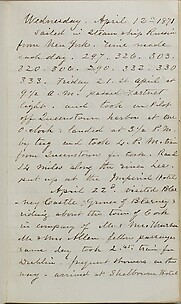 Wednesday, April 12th 1871
Sailed in Steamship Russia
from New York. Time made
each day. 297, 326, 303,
320, 300, 290, 332, 330
333. Friday 21st April at
9½ a.m. passed Fastnet
light. and took in Pilot
off Queenstown harbor at one
o'clock. landed at 3½ P.M.
by tug and took 4 P.M. train
from Queenstown for Cork. Road
14 miles along the river
put up at the Imperial Hotel
April 22d. visited Blar-
ney Castle, Groves of Blarney &
riding about the town of Cork
in company of Mr & Mrs
Mr & Mrs Allen fellow passengers
same day took 2 train for
Dublin. frequent showers on the
way. arrived at Shelbourne Hotel